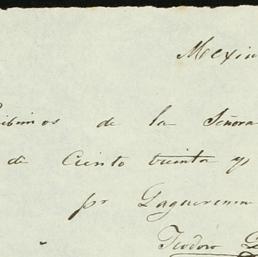 Mexi
cibimos de la Señora
de Ciento treinta y
pr Laguerenne
Teodoro